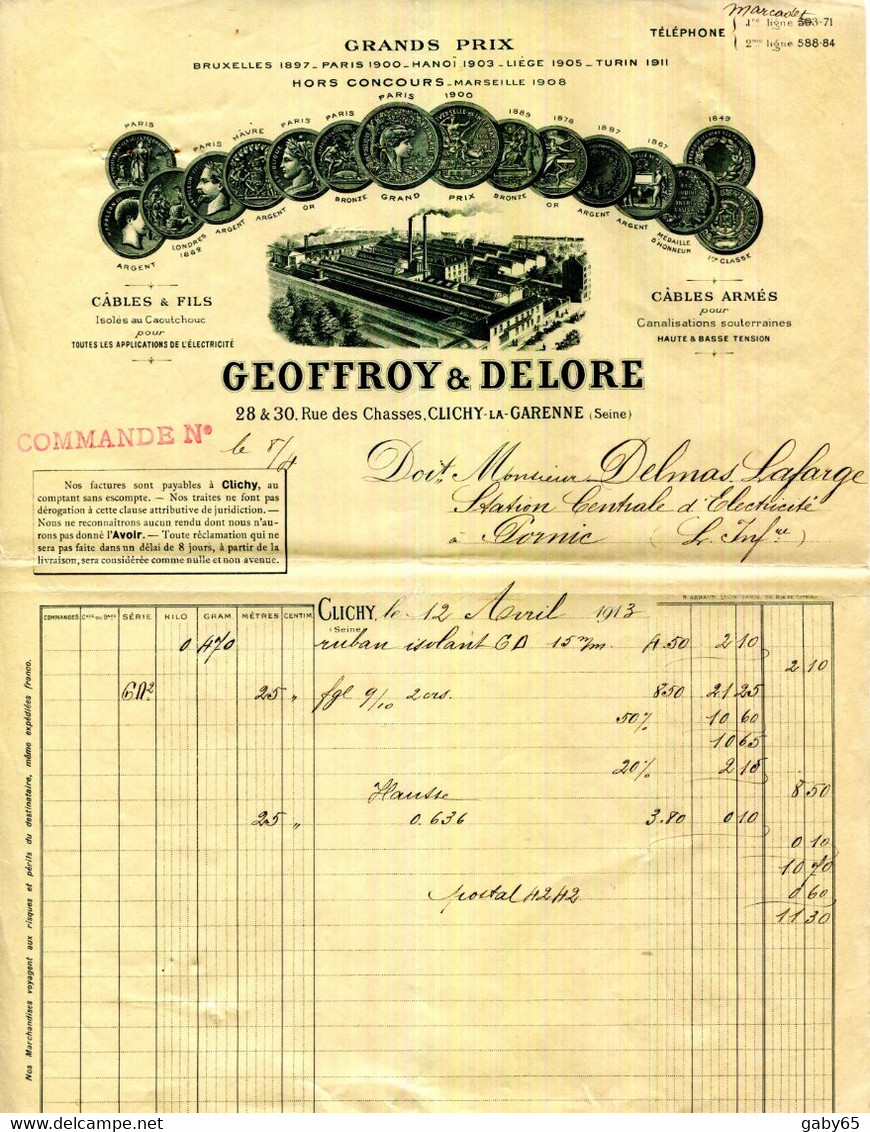 Marcadet
TÉLÉPHONE
1re ligne 503-71
2me ligne 588-84
GRANDS PRIX
BRUXELLES 1897 - PARIS 1900 - HANOÏ 1903 - LIÉGE 1905 - TURIN 1911
HORS CONCOURS - MARSEILLE 1908
PARIS 1900
PARIS
PARIS
HÂVRE
PARIS
PARIS
1889
1878
1887
1867
1849
ARGENT
LONDRES 1862
ARGENT
ARGENT
OR
BRONZE
GRAND PRIX
BRONZE
OR
ARGENT
ARGENT
MÉDAILLE D'HONNEUR
1re CLASSE
CÂBLES & FILS
Isolés au Caoutchouc
pour
TOUTES LES APPLICATIONS DE L'ÉLECTRICITÉ
CÂBLES ARMÉS
pour
Canalisations souterraines
HAUTE & BASSE TENSION
GEOFFROY & DELORE
28 & 30, Rue des Chasses, CLICHY-LA-GARENNE (Seine)
COMMANDE No
le 8/4
Doit Monsieur Delmas Lafarge
Station Centrale d'Electricité
à Pornic (L. Infre)
Nos factures sont payables à Clichy, au
comptant sans escompte. — Nos traites ne font pas
dérogation à cette clause attributive de juridiction. —
Nous ne reconnaîtrons aucun rendu dont nous n'au-
rons pas donné l'Avoir. — Toute réclamation qui ne
sera pas faite dans un délai de 8 jours, à partir de la
livraison, sera considérée comme nulle et non avenue.
COMMANDES SÉRIE KILO GRAM. MÈTRES CENTIM. CLICHY, le 12 Avril 1913
(Seine)
0 470 ruban isolant GD 15 m/m. 4.50 2 10
2 10
25 " fgl 9/10 2 crs. 850 21 25
50% 10 60
10 65
20% 2 15
8 50
Hausse
25 " 0.636 3.80 0 10
0 10
10 70
postal 4242 0 60
11 30
Nos Marchandises voyagent aux risques et périls du destinataire, même expédiées franco.
gaby65